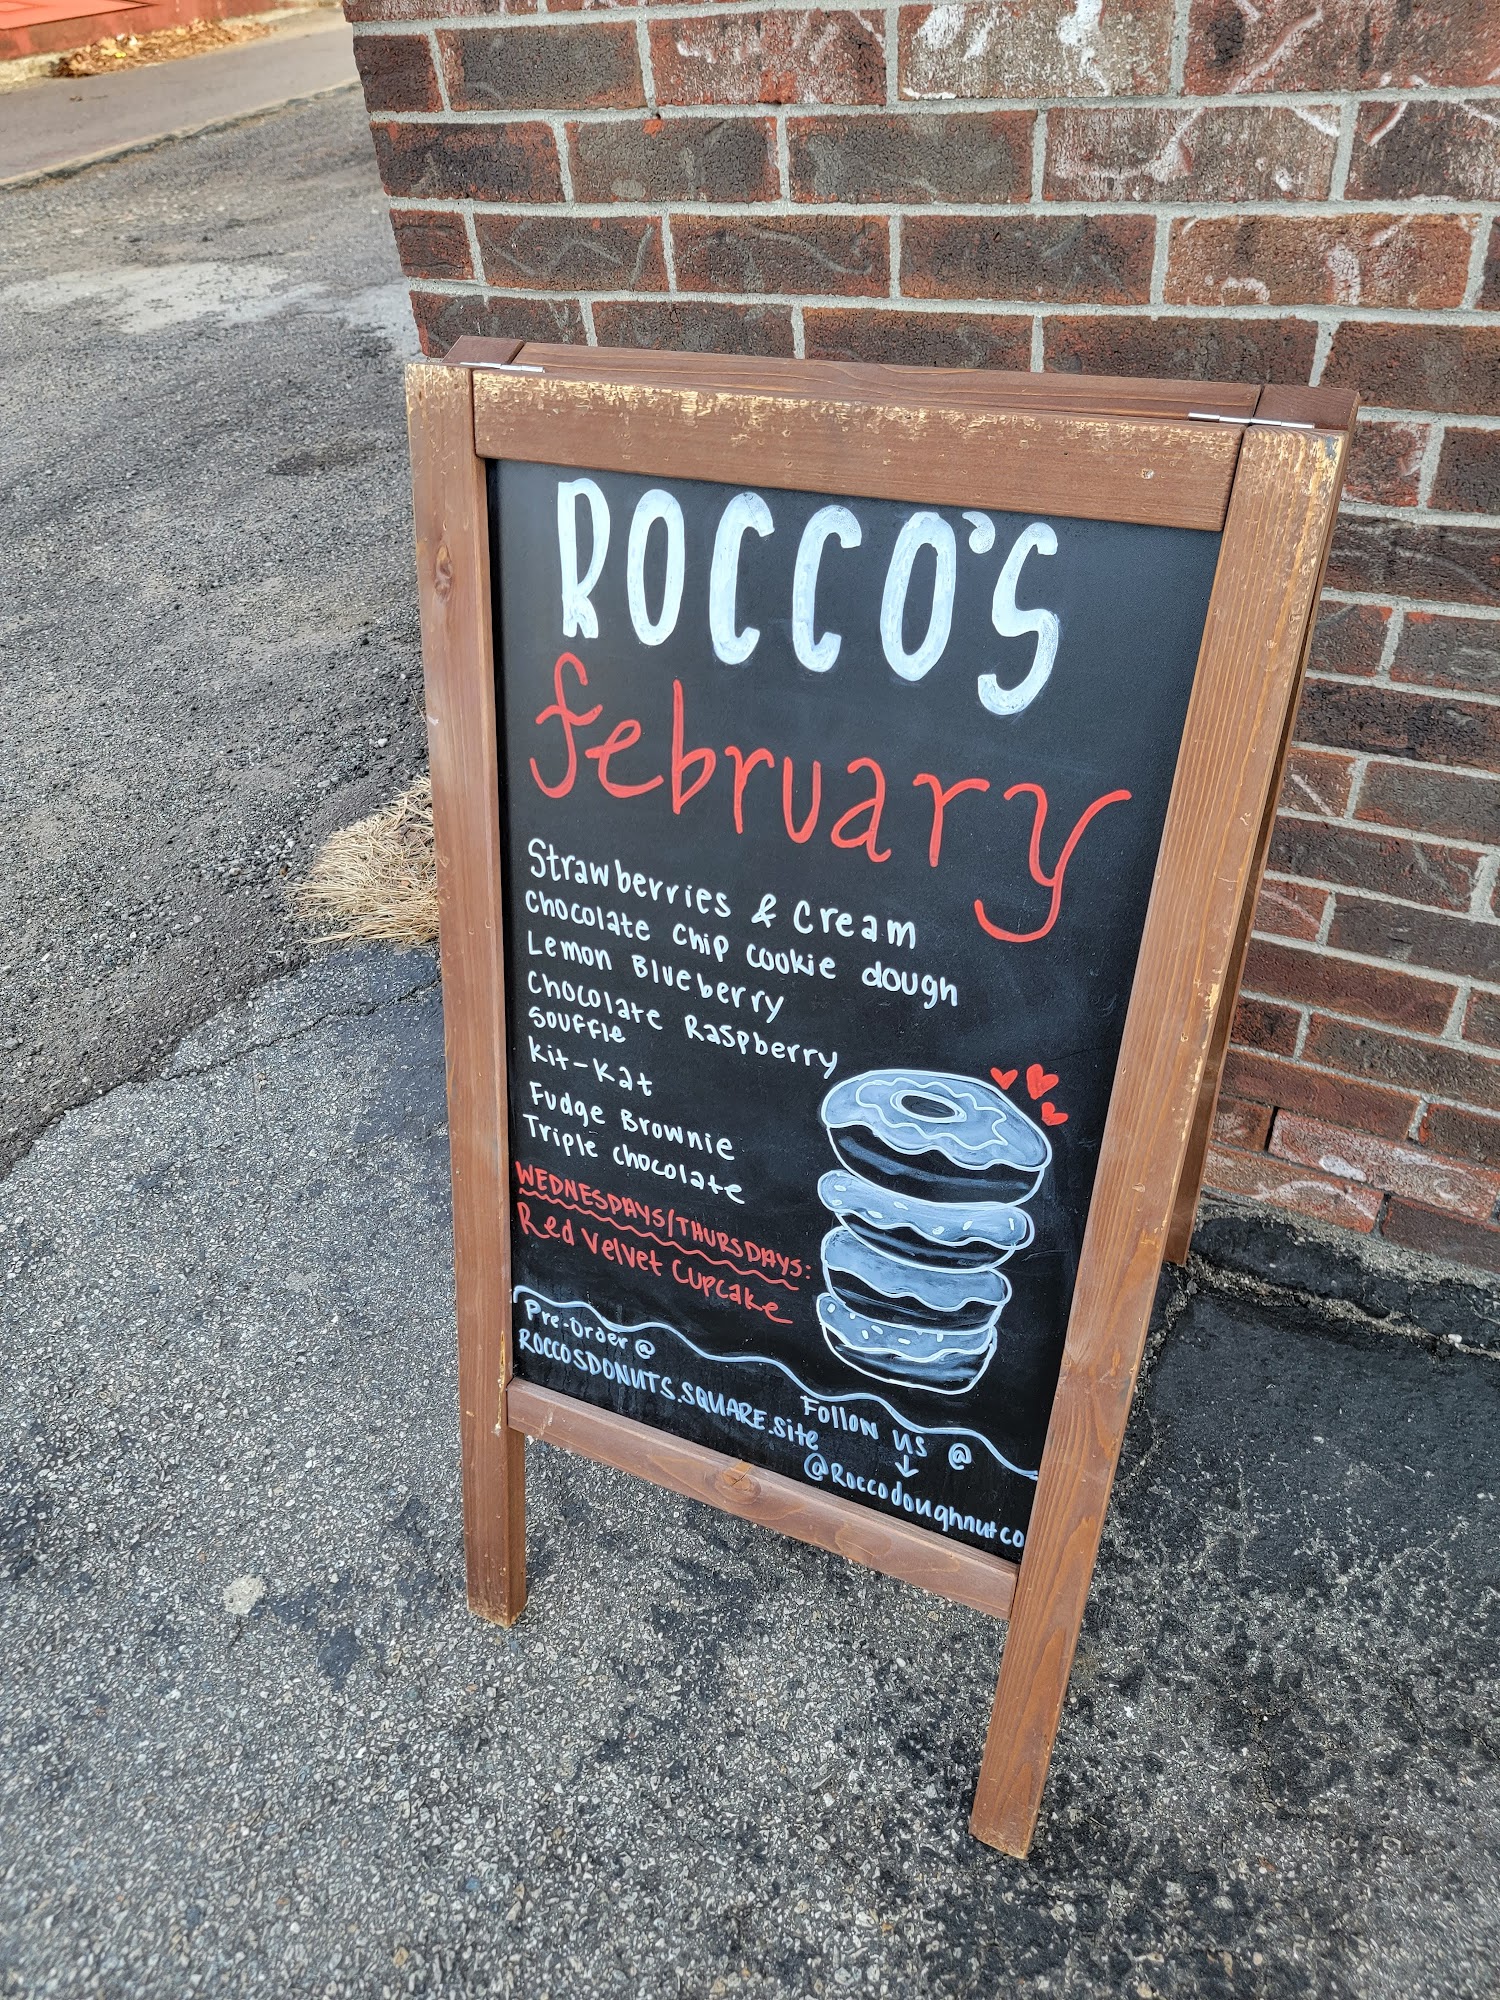 ROCCO'S
february
Strawberries & Cream
Chocolate Chip Cookie dough
Lemon Blueberry
Chocolate Raspberry
Souffle
Kit-Kat
Fudge Brownie
Triple Chocolate
WEDNESDAYS/THURSDAYS:
Red Velvet Cupcake
Pre-Order @
ROCCOSDONUTS.SQUARE.Site
Follow us @
↓
@Roccodoughnutco